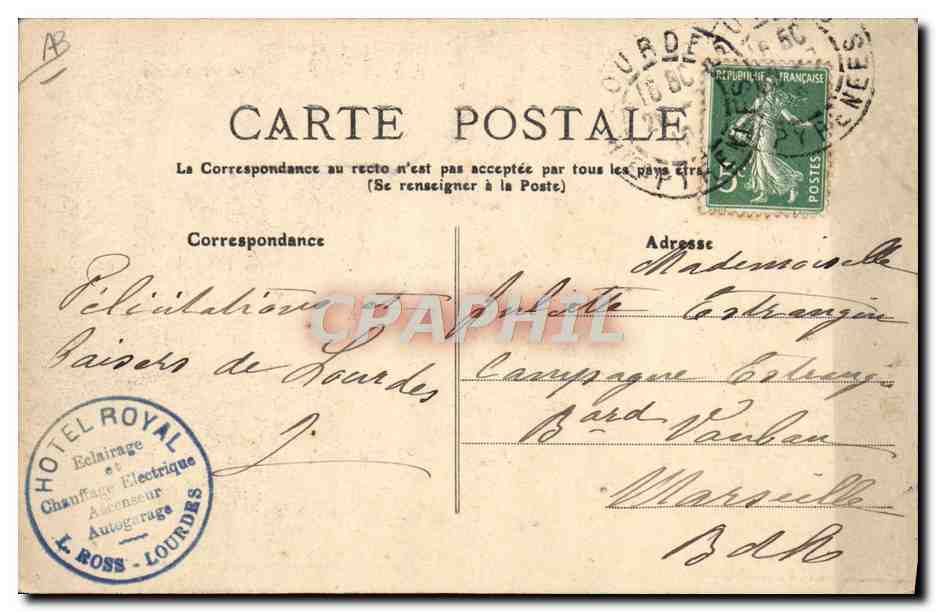 AB
CARTE POSTALE
La Correspondance au recto n'est pas acceptée par tous les pays étr
(Se renseigner à la Poste)
REPUBLIQUE FRANÇAISE
5c
POSTES
LOURDES
HTES PYRENEES
Correspondance
Félicitations et
baisers de Lourdes
J
Adresse
Mademoiselle
Juliette Estrangin
Campagne Estrangin
Bard Vauban
Marseille
BdR
CPAPHIL
HOTEL ROYAL
Eclairage
et
Chauffage Electrique
Ascenseur
Autogarage
L. ROSS - LOURDES